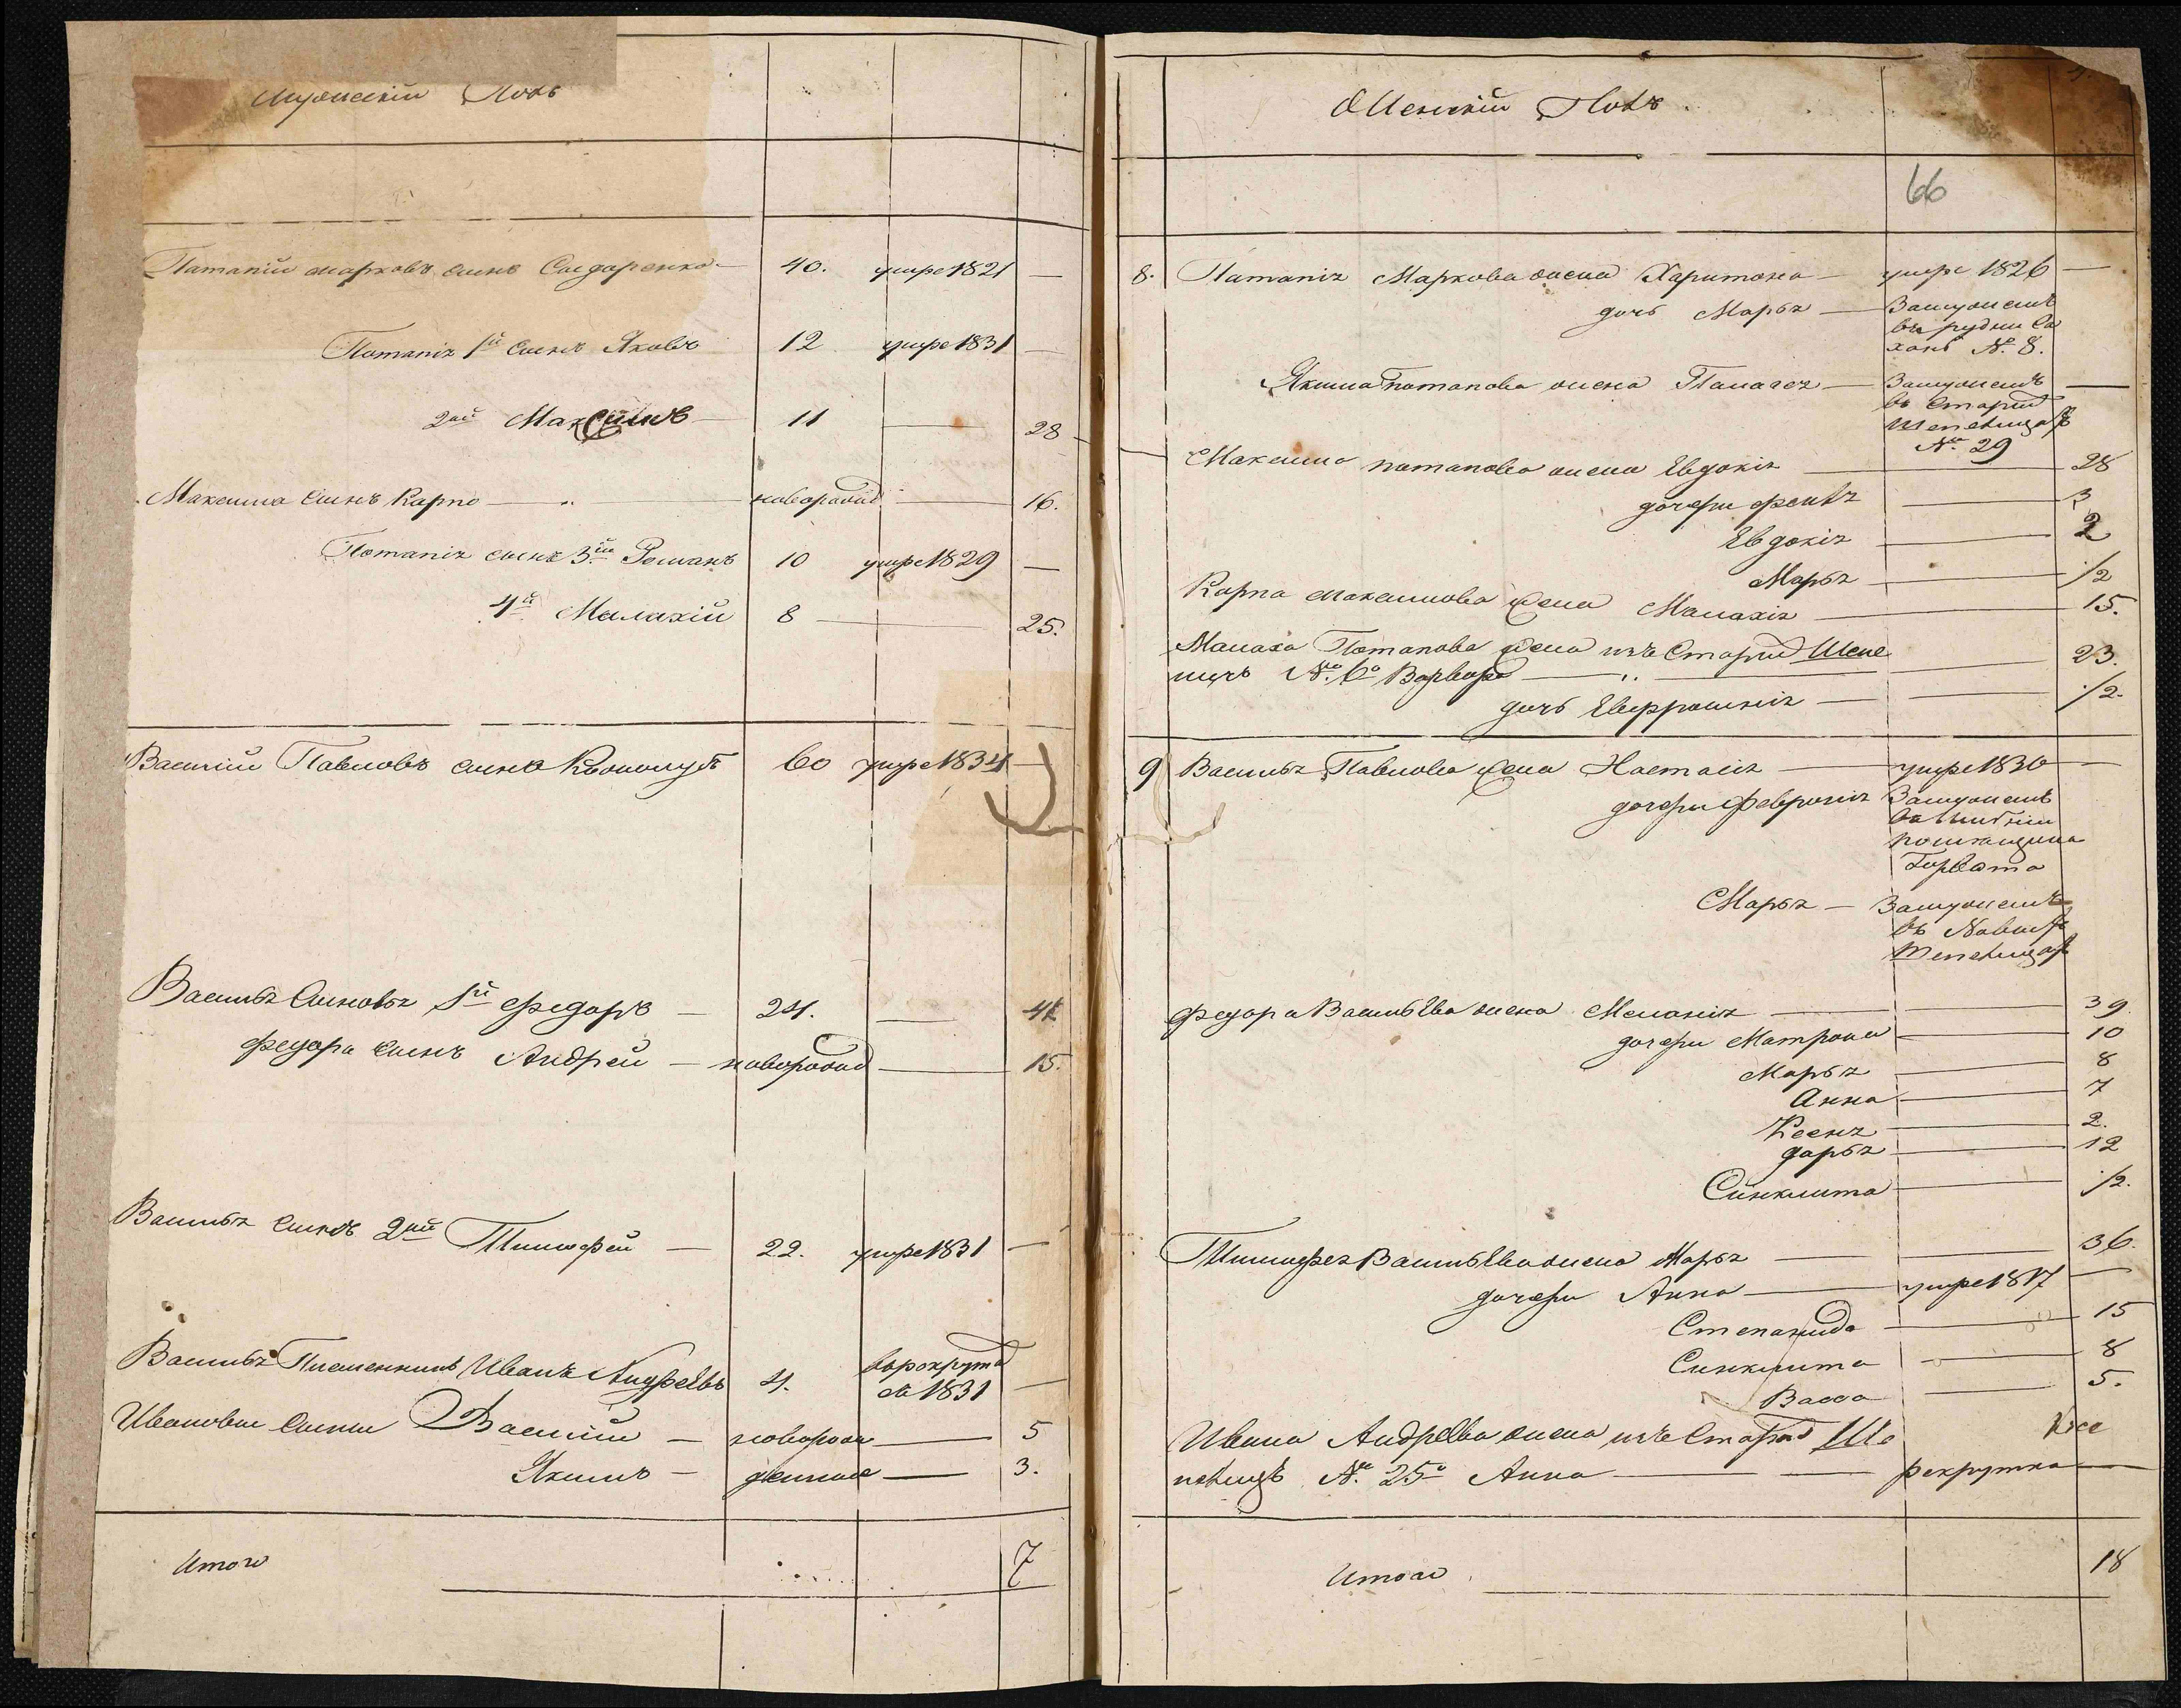 Мужескій Полъ
Патапій Марковъ сынъ Сыдаренко 40. умре 1821 —
Потапія 1й сынъ Яковъ 12 умре 1831 —
2ой Максимъ 11 — 28
Максима сынъ Карпо — новорожд — 16.
Потапія сынъ 3ій Романъ 10 умре 1829 —
4й Малахій 8 — 25.
Василій Павловъ сынъ 60 умре 1834 —
Василья Сыновья 1й Федоръ — 24. — 41
Федора сынъ Андрей — новорожд — 15.
Василья сынъ 2ой Тимофей — 22. умре 1831 —
Василья Племенникъ Иванъ Андреевъ 4. въ рекруты
въ 1831 —
Ивановы сыны Василій — новорож — 5
Якимъ — денные — 3.
Итого 7
Женскій Полъ
66
8. Патапія Маркова жена Харитона — умре 1826 —
дочь Марья — Замужемъ
въ рудни
№ 8.
Якима Потапова жена Палагея — Замужемъ —
въ Старых
Шепелицах
№ 29
Максима потапова жена Евдокія — 28
дочери Фекла — 3
Евдокія — 2
Марья — 1/2
Карпа Максимова жена Малахія — 15.
Малаха Потапова жена изъ Старых Шепе
лицъ № 6о Варвара — 23.
дочь Евфросинія — 1/2.
9 Василья Павлова жена Настасія — умре 1830 —
дочери Февронія Замужемъ
помещика
Горвата
Марья — Замужемъ
въ Новых
Шепелицах
Федора Васильева жена Меланія — 39
дочери Матрона — 10
Марья — 8
Анна — 7
Ксеня — 2.
Дарья — 12
Синклита — 1/2.
Тимофея Васильева жена Марья — 36.
дочери Анна — умре 1817 —
Степанида — 15
Синклита — 8
Васса — 5.
Ивана Андреева жена изъ Старых Ше
пелицъ № 25о Анна — рекрутка —
Итого 18